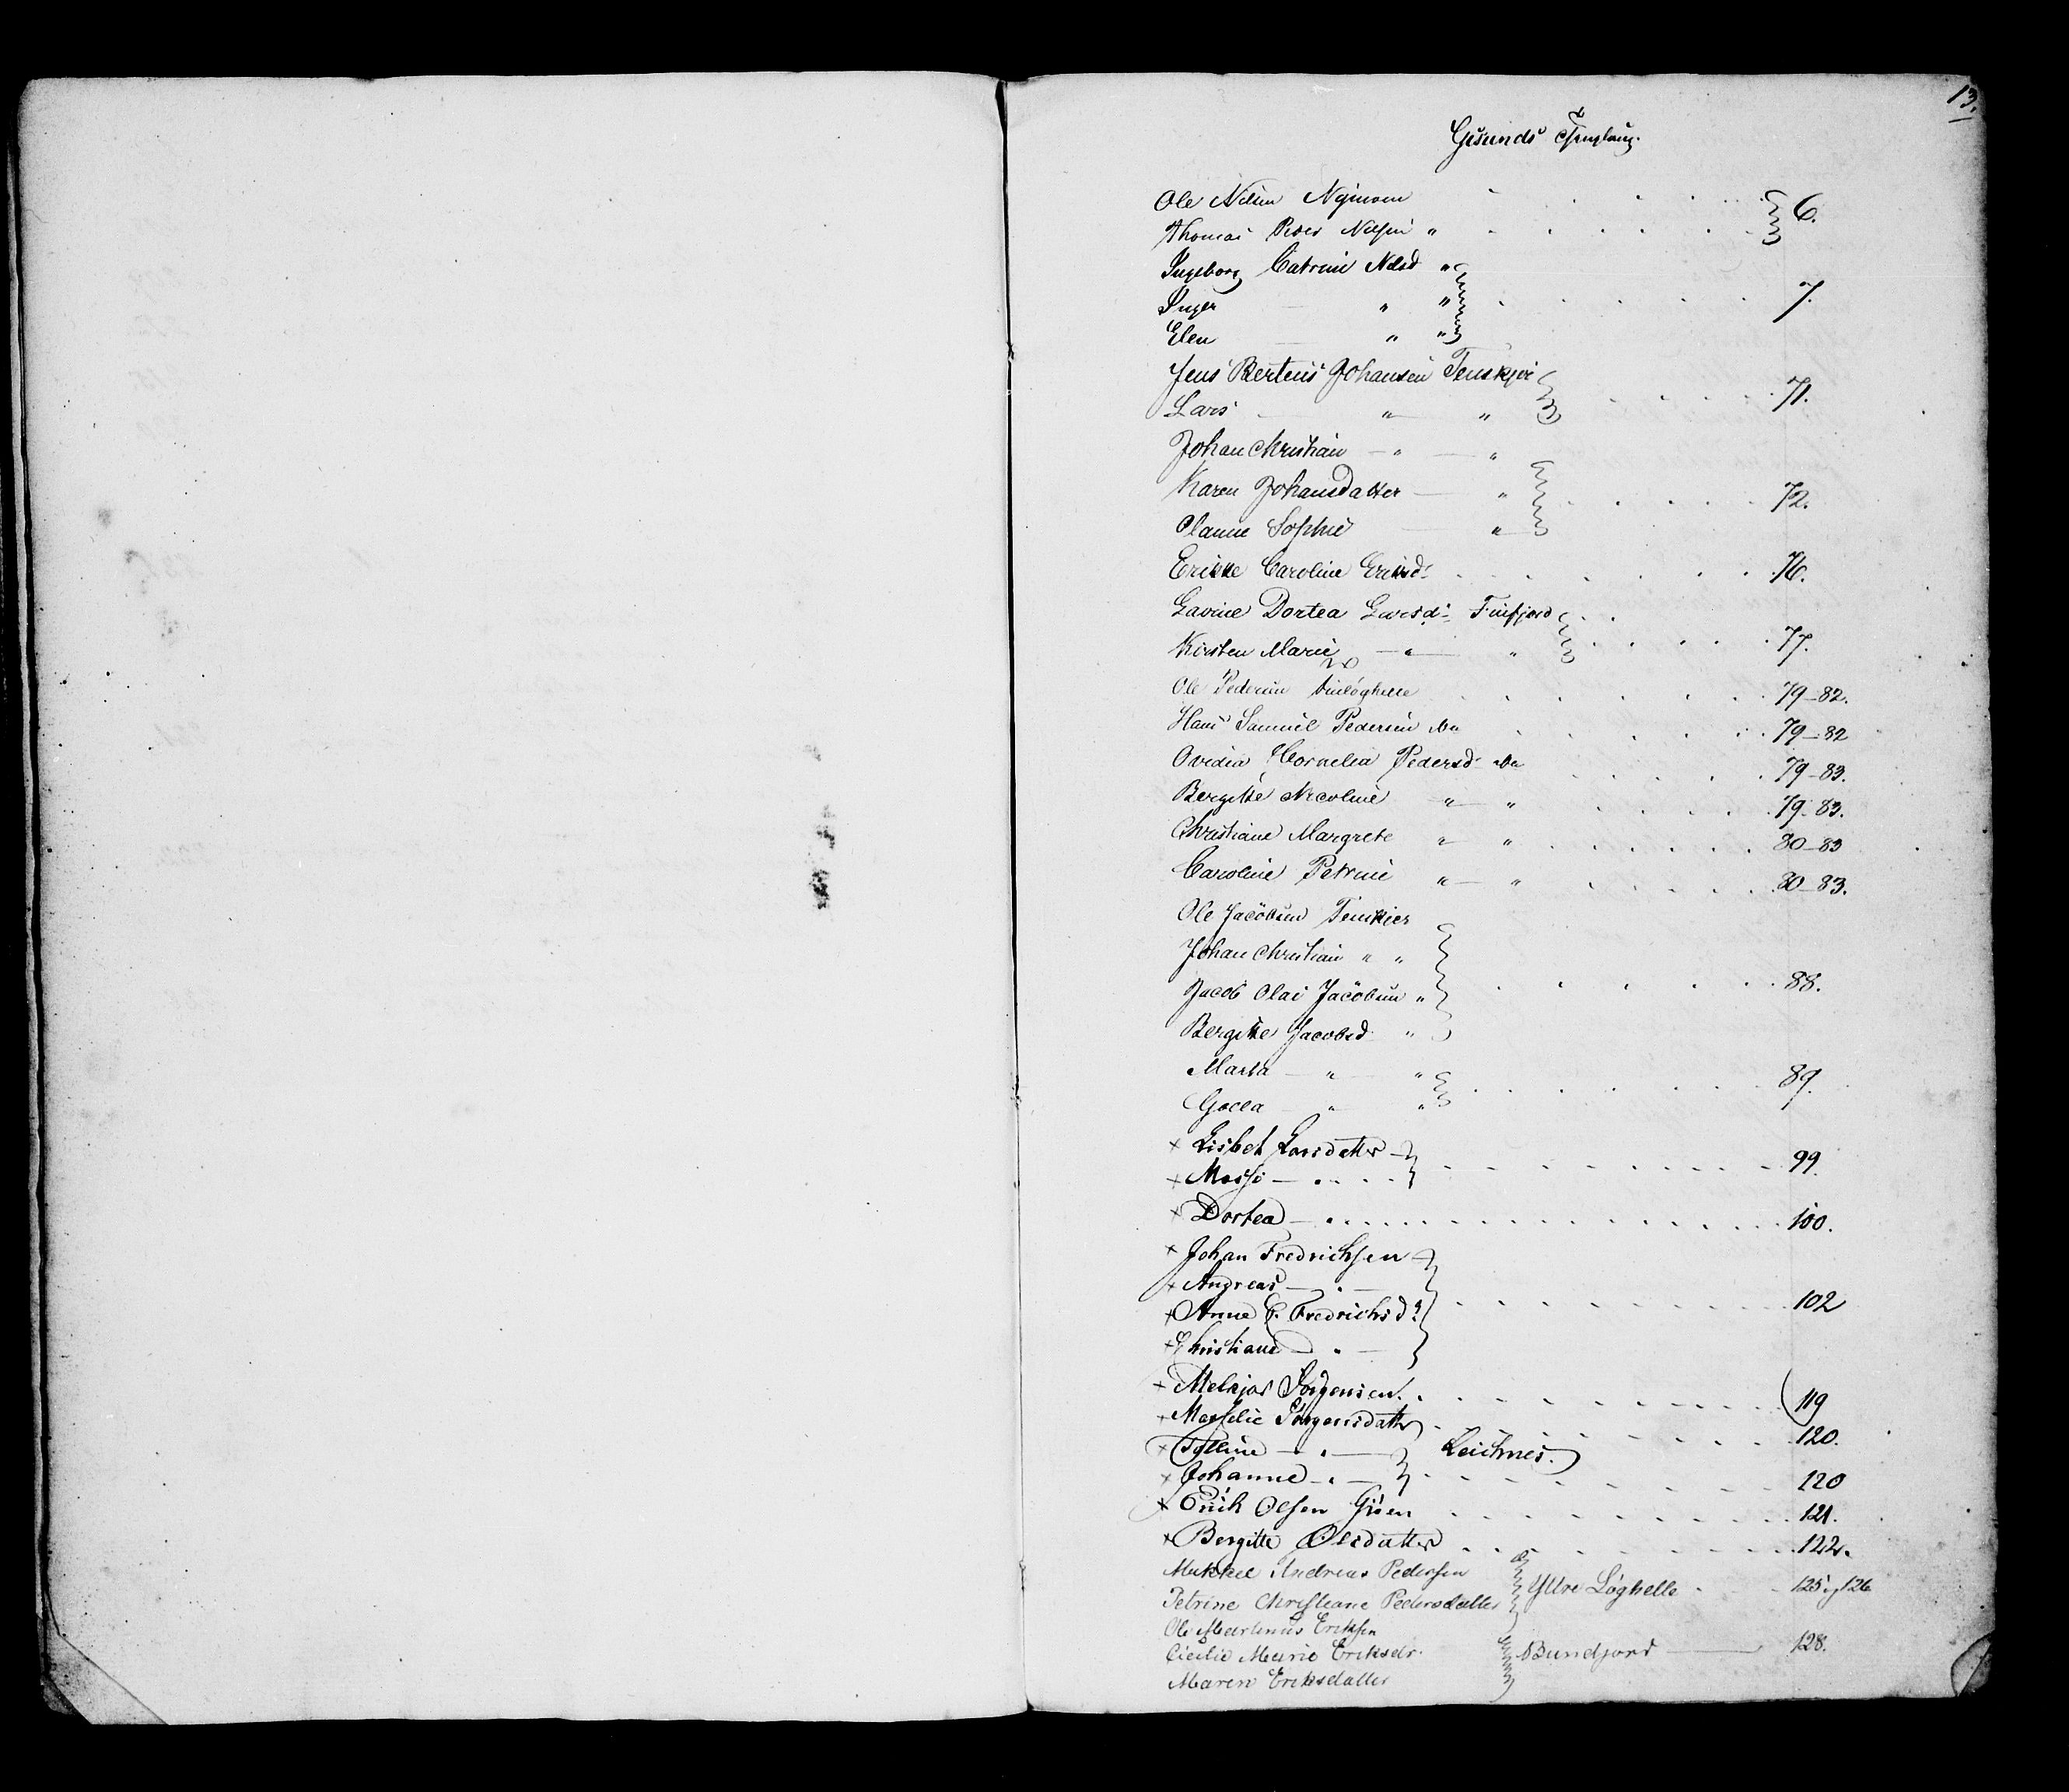 13.
Gisunds Thinglaug.
Ole Nilsen
Thomas Nilsen "
6.
Ingeborg Catrine Nilsd "
Inger " "
Elen " "
7.
Jens Berteus Johansen Tenskjer
Lars — " — "
71.
Johan Christian — " — "
Karen Johansdatter — "
Olanne Sophie — "
72.
Erikke Caroline Eriksd: 76.
Lavine Dortea Larsd: Finfjord
Kirsten Marie — " — "
77.
Ole Pedersen 79-82.
Hans Samuel Pedersen do 79-82
Ovidia Cornelia Pedersd do 79-83.
Bergitte Nicoline " — " 79-83.
Christiane Margrete " — " 80-83
Caroline Petrine " — " 80-83.
Ole Jacobsen Tenskier
Johan Christian " "
Jacob Olai Jacobsen "
Bergitte Jacobsd "
88.
Marta — " — "
Gjocla — " — "
89.
× Lisbet Larsdatter
× Massi — "
99.
× Dortea — " 100.
× Johan Fredrichsen
× Andreas — " —
× Anne C. Fredrichsd:
× Christiane — " —
102
× Melkjor Jörgensen. 119
× Marselie Jörgensdatter 120.
× — " — Leiknes.
× Johanne — " — 120
× Erik Olsen 121.
× Bergitte Olsdatter 122.
Mikkel Andreas Pedersen
Petrine Christiane Pedersdatter
Yttre Løghelle 125 og 126
Ole Martinus Eriksen
Cicilie Marie Eriksdr.
Maren Eriksdatter
Bundjord — 128.